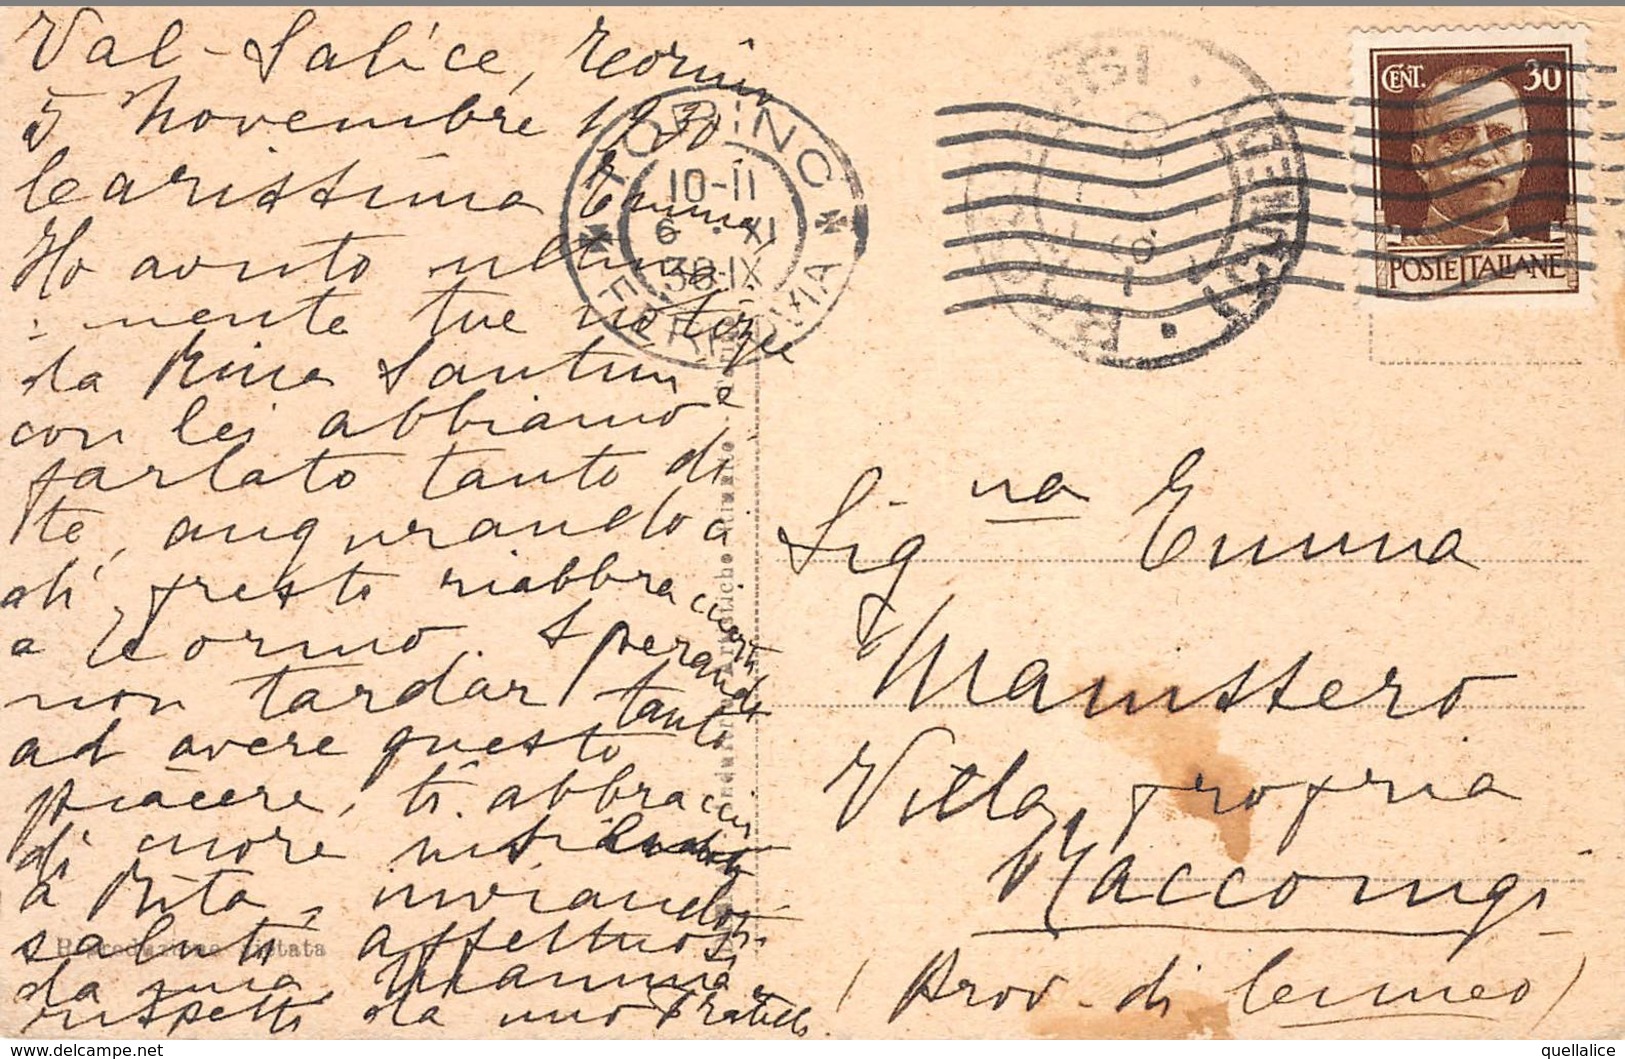 Val-Salice, Torino
5 Novembre 1930
Carissima Emma,
Ho avuto ultima
mente tue notizie
da Rina Santin e
con lei abbiamo
parlato tanto di
te, augurandoci
di presto riabbracciarti
a Torino. Sperando
non tardar tanto
ad avere questo
piacere, ti abbraccio
di cuore
a Rita, inviandoti
saluti affettuosi
da mia Mamma e
rispetti da mio Fratello.
Sig.na Emma
Manissero
Villa propria
Racconigi
(Prov. di Cuneo)
CENT. 30
POSTE ITALIANE
TORINO
FERROVIA
10-11
6 · XI
30·IX
RACCONIGI
quellalice